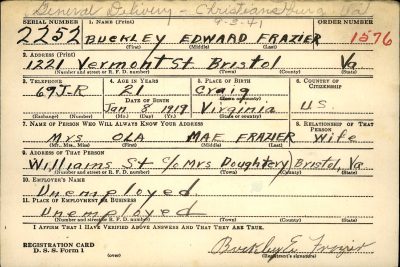 General Delivery - Christiansburg Va
9-3-41
SERIAL NUMBER 1. NAME (Print) ORDER NUMBER
2252 BUCKLEY EDWARD FRAZIER 1576
(First) (Middle) (Last)
2. ADDRESS (Print)
1221 Vermont St Bristol Va
(Number and street or R. F. D. number) (Town) (County) (State)
3. TELEPHONE 4. AGE IN YEARS 5. PLACE OF BIRTH 6. COUNTRY OF CITIZENSHIP
69J-R 21 Craig
DATE OF BIRTH (Town or county)
Jan 8 1919 Virginia U.S.
(Exchange) (Number) (Mo.) (Day) (Yr.) (State or country)
7. NAME OF PERSON WHO WILL ALWAYS KNOW YOUR ADDRESS 8. RELATIONSHIP OF THAT PERSON
Mrs OLA MAE FRAZIER Wife
(Mr., Mrs., Miss) (First) (Middle) (Last)
9. ADDRESS OF THAT PERSON
Williams St c/o Mrs Doughtery Bristol, Va
(Number and street or R. F. D. number) (Town) (County) (State)
10. EMPLOYER'S NAME
Unemployed
11. PLACE OF EMPLOYMENT OR BUSINESS
Unemployed
(Number and street or R. F. D. number) (Town) (County) (State)
I AFFIRM THAT I HAVE VERIFIED ABOVE ANSWERS AND THAT THEY ARE TRUE.
REGISTRATION CARD
D. S. S. Form 1
(over)
Buckley E. Frazier
(Registrant's signature)